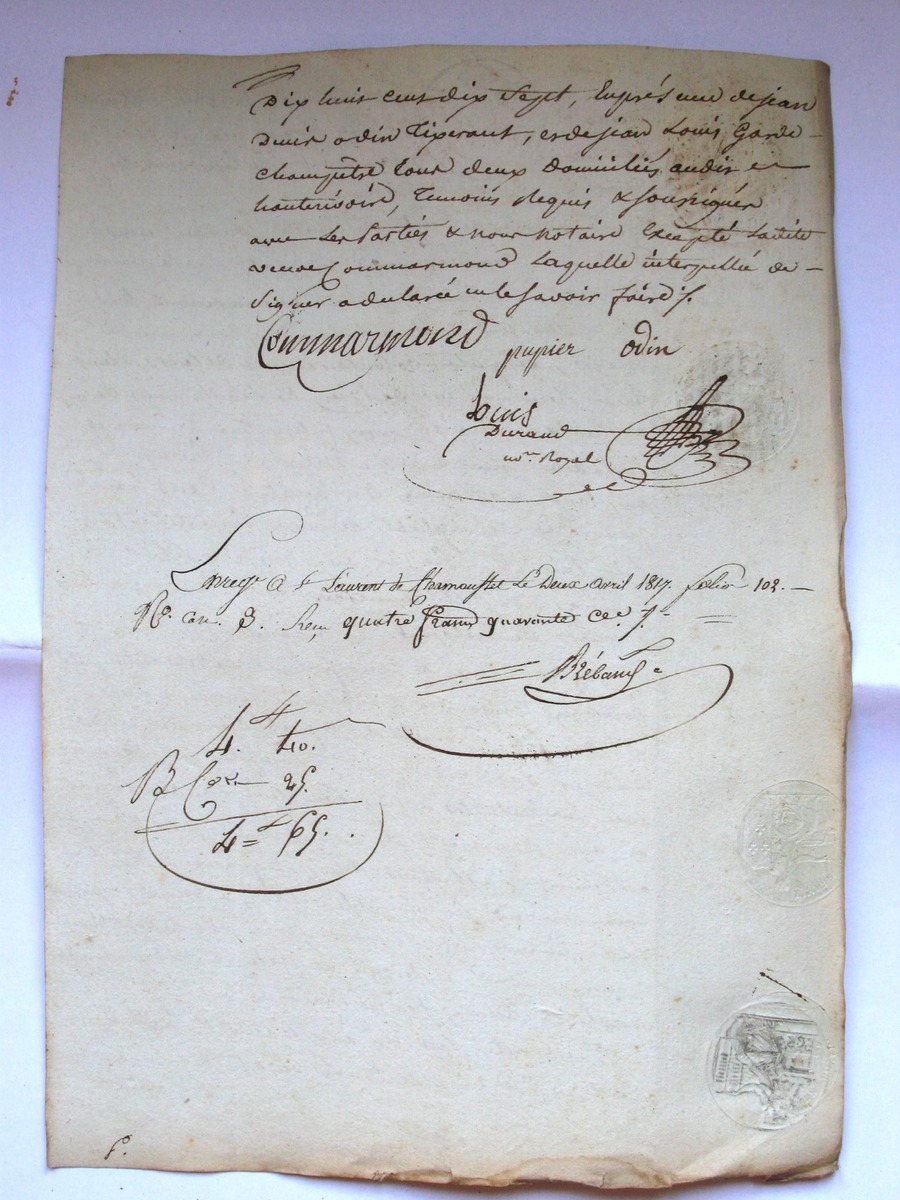 Dix huit cent dix Sept, En présence de jean
Denis odin Tixerant, et de jean Louis Garde
champêtre tous deux domiciliés audit
hauterivoire, Temoins Requis & soussignés
avec Les Parties & nous notaire Excepté Ladite
veuve Commarmond Laquelle interpellée de
Signer a declaré ne le savoir faire /.
Commarmond pupier odin
Louis
Durand
nore. Royal
Enregé à St Laurent de Chamousset Le Deux avril 1817. folio 102.
Ro. Case 3. Reçu quatre francs quarante cees /.
Brébant
4. 40.
45.
4 = 65.